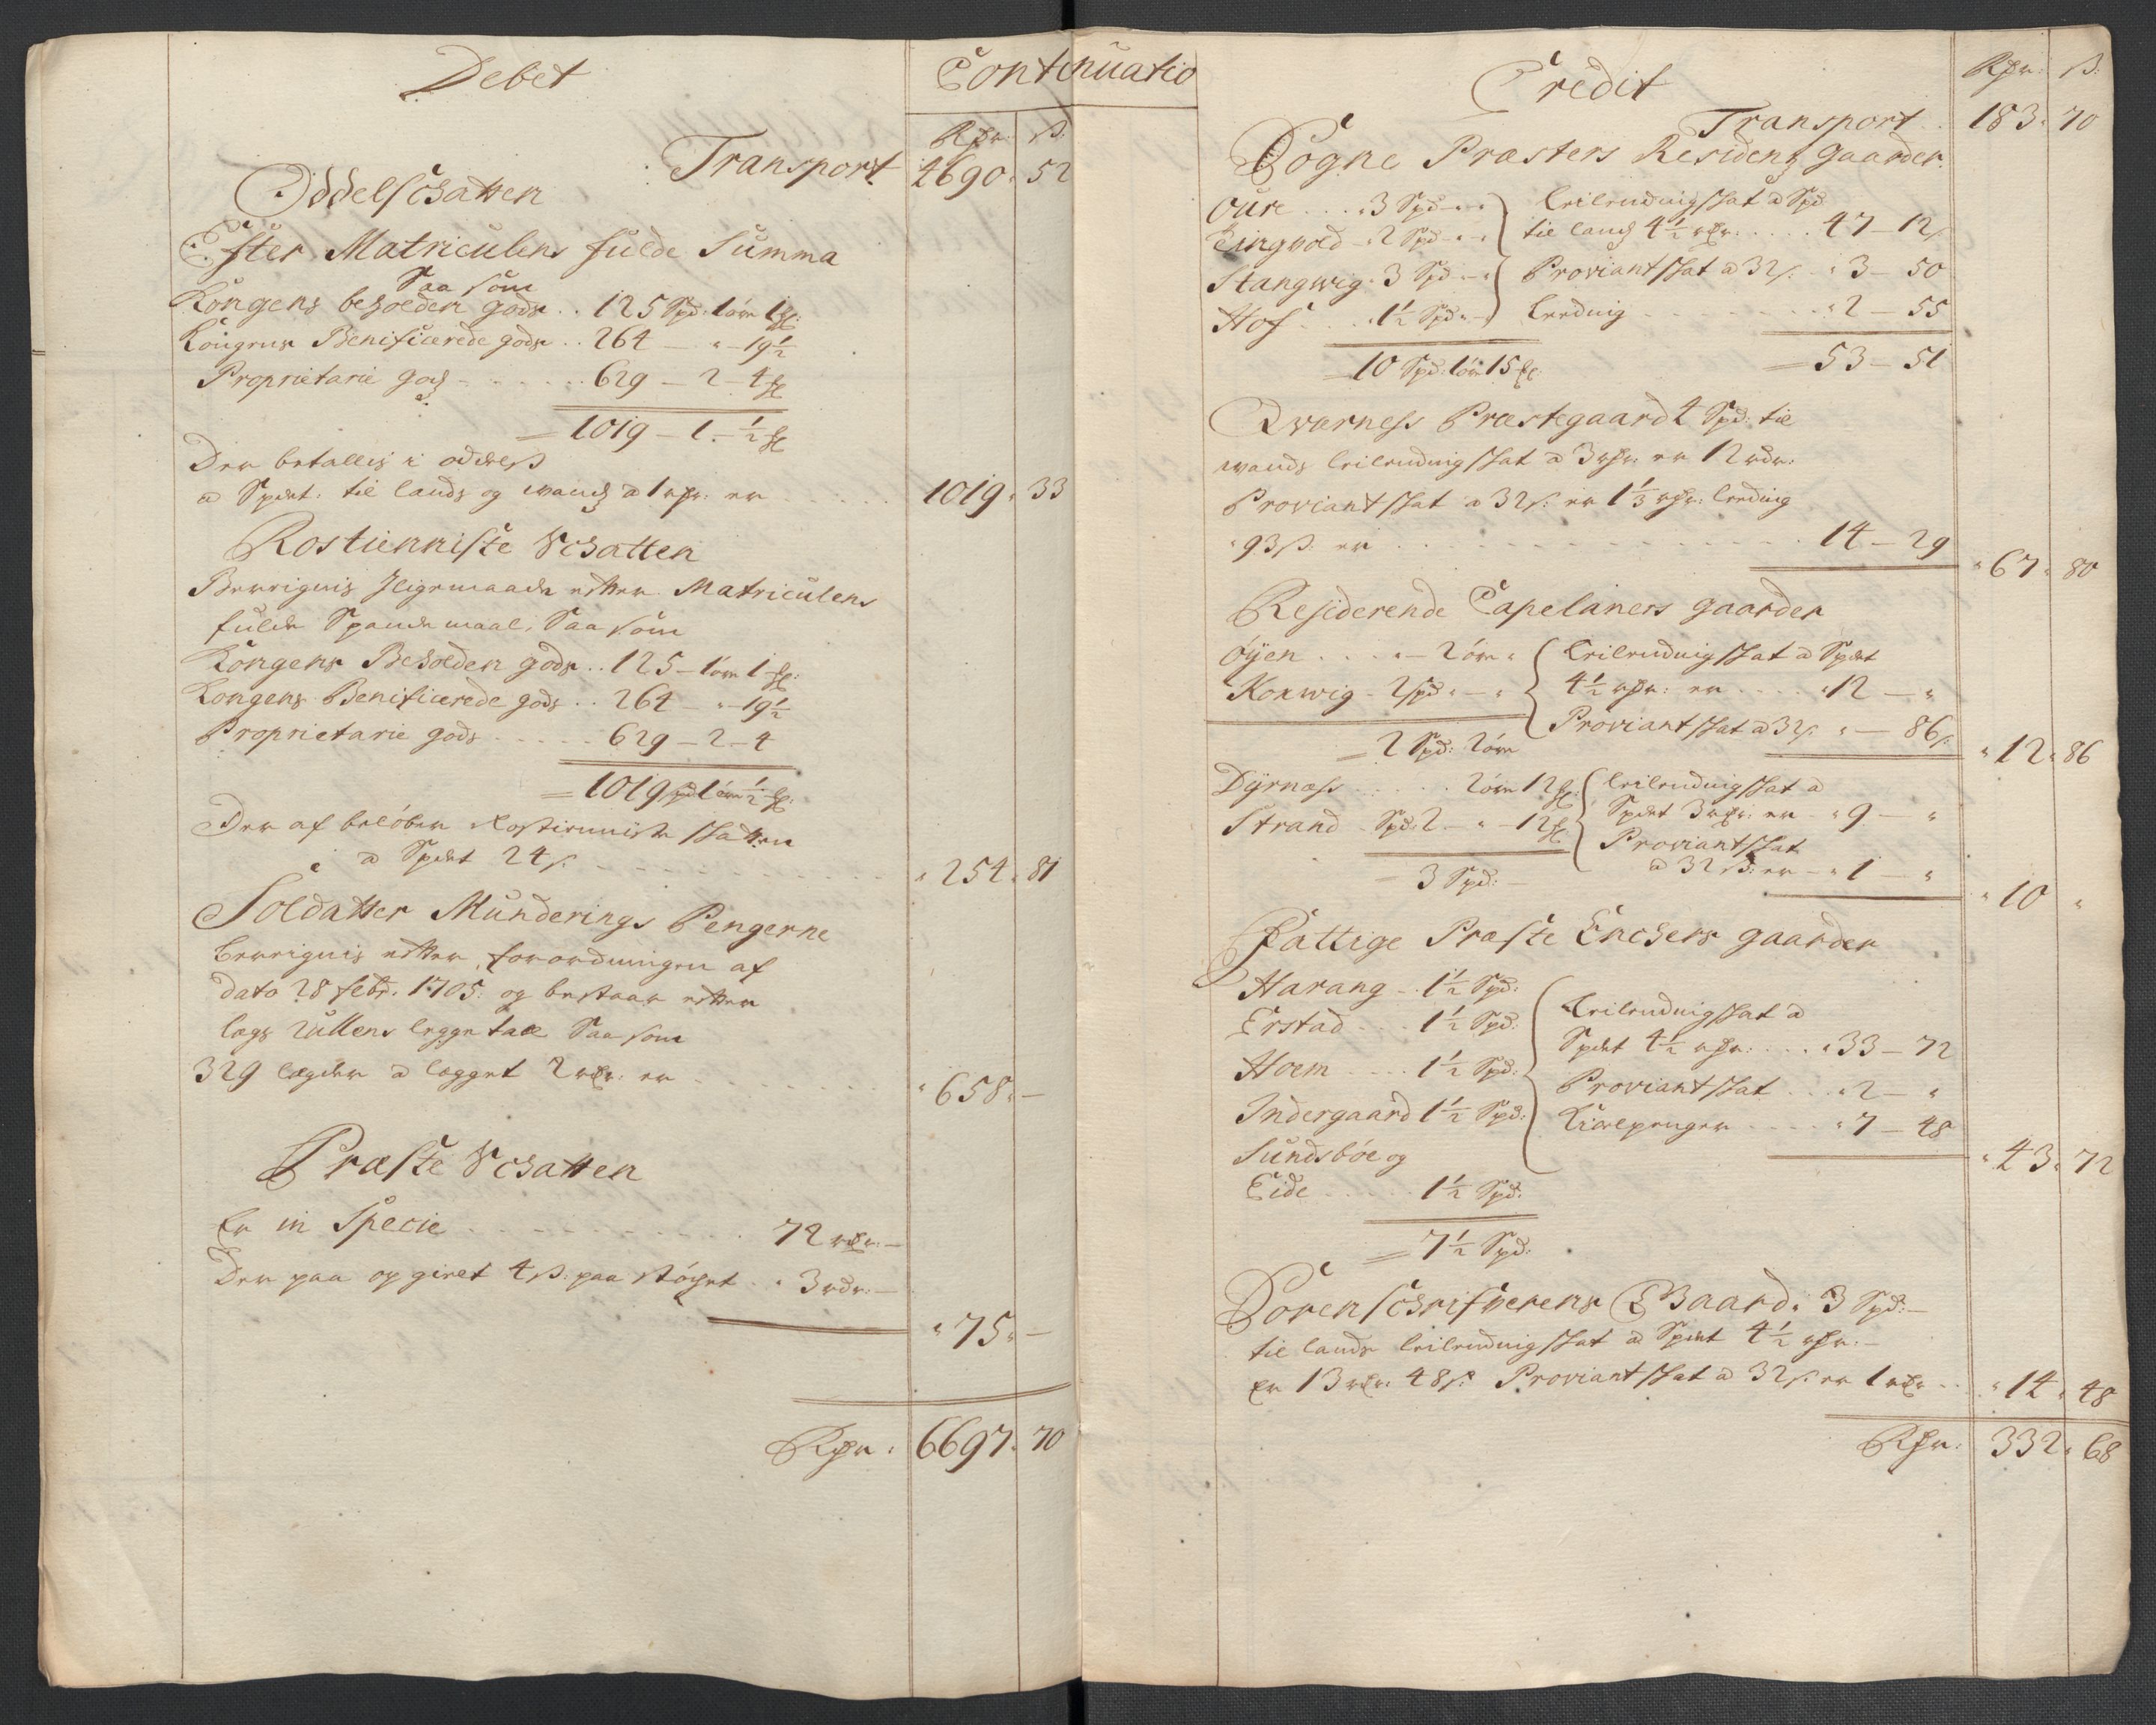 Debet
Continuatio
Rdr: ß:
Transport 4690. 52
Oddelschatten
Efter Matriculens fulde Summa
Saa som
Kongens beholden gods .. 125 Spd: 1 ør 1 ℔:
Kongens Benificerede gods .. 264 — " — 19½
Proprietarie gods - . . . . . 629 — 2 — 4 ℔
= 1019 — 1. — ½ ℔
Der betallis i oddelß
a Spdet: til lands og wands a 1 rdr: er . . . . . 1019. 33
Rostienniste Schatten
Berrignis Jligemaade efter Matriculens
fulde Spande maal, Saa som
Kongens Beholden gods .. 125 — 1 ør 1 ℔:
Kongens Benificerede gods .. 264 — " — 19½
Proprietarie gods . . . . . 629 — 2 — 4
= 1019 spd 1 ør ½ ℔:
Der af beløber Rostienniste skatten
a Spdet 24 ß. - - - - - " 254. 81
Soldatter Munderings Pengerne
berrignis efter forordningen af
dato 28 febr. 1705. og bestaar efter
lægs Rullens legge tall Saa som
329 lægder a lægget 2 rdr: er . . . . . " 658. —
Præste Schatten
Er in Specie . . . . . . . 72 rdr: —
Der paa op giret 4 ß: paa støchet . " 3 rdr: —
" 75. —
Rdr. 6697. 70
Credit
Rdr: ß:
Transport . . 183. 70
Sogne Præsters Residenz gaarder.
Oure . . . . 3 Spd — " — " Leilendingskat a Spd
Tingvold — 2 Spd — " — til lands 4½ rdr: . . . . 47 — 12 ß
Stangwig . 3 Spd — " Proviantskat a 32 ß. . " 3 — 50
Hof . . . . 1½ Spd " — " Leeding - - - - - " 2 — 55
= 10 Spd: 1 ør 15 ℔: = 53 — 51
Qværness Præstegaard 4 Spd: til
wands leilendingskat a 3 rdr: er 12 rdr:
Proviantskat a 32 ß: er 1⅓ rdr: leeding
" 93 ß. er . . . . . . . . . 14 — 29
" 67. 80
Residerende Capelaners gaarder
Øyen . . . . " — 2 ør " Leilendingskat a Spdet
Korwig — 2 spd " — " 4½ rdr: er . . . . " 12 — "
Proviantskat a 32 ß " — 86 ß.
= 2 Spd: 2 ør " 12. 86
Dyrnæss . . . . . 2 ør 12 ℔: leilendingskat a
Strand — Spd: 2 — " — 12 ℔ Spdet 3 rdr: er — " 9 — "
Proviantskat
a 32 ß: er — " 1 — "
= 3 Spd: — " 10 "
Fattige Præste Enchers gaarder
Harang — . 1½ Spd:
Erstad . . . 1½ Spd: Leilendingskat a
Spdet 4½ rdr: . . . . " 33 — 72
Hoem . . . . 1½ Spd:
Proviantskat . . . " 2 — "
Indergaard 1½ Spd: Kiølpenger . . . . . " 7 — 48
Sundsbøe og " 43. 72
Eide . . . . . 1½ Spd:
= 7½ Spd:
Sorenschrifverens Gaard. 3 Spd: —
til lands leilendingskat a Spdet 4½ rdr: —
Er 13 rdr. 48 ß. Proviantskat a 32 ß er 1 rdr - . . " 14. 48
Rdr: 332. 68